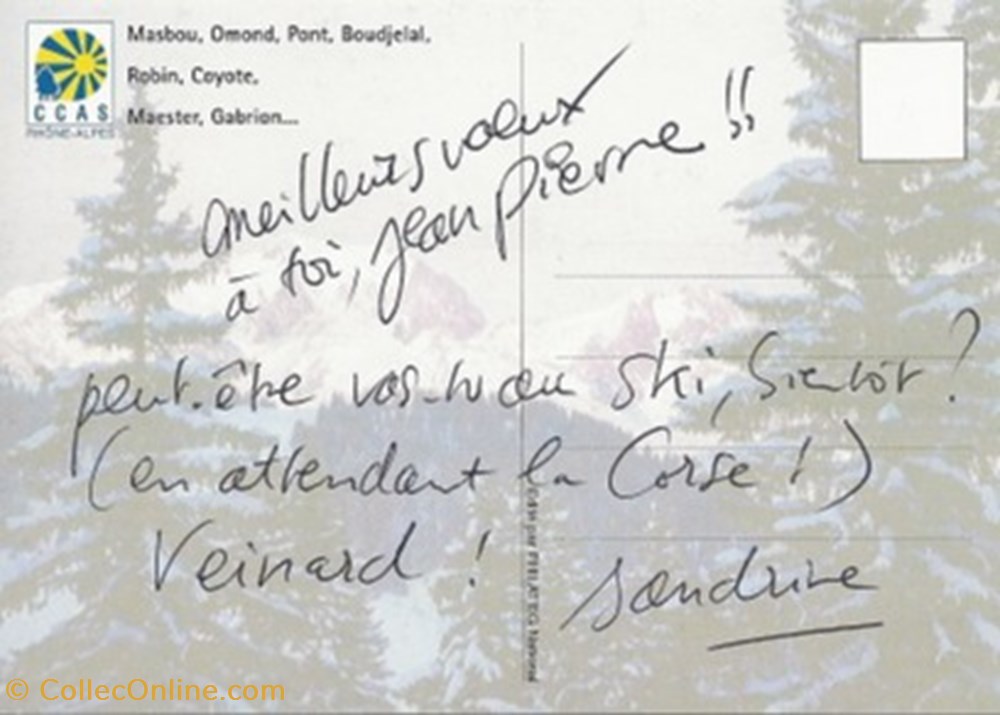 Masbou, Omond, Pont, Boudjelal,
Robin, Coyote,
Maester, Gabrion...
CCAS
RHÔNE-ALPES
meilleurs voeux
à toi, jean pierre !!
peut-être vas-tu au ski, bientôt ?
(en attendant la Corse !)
Veinard !
sandrine
© CollecOnline.com